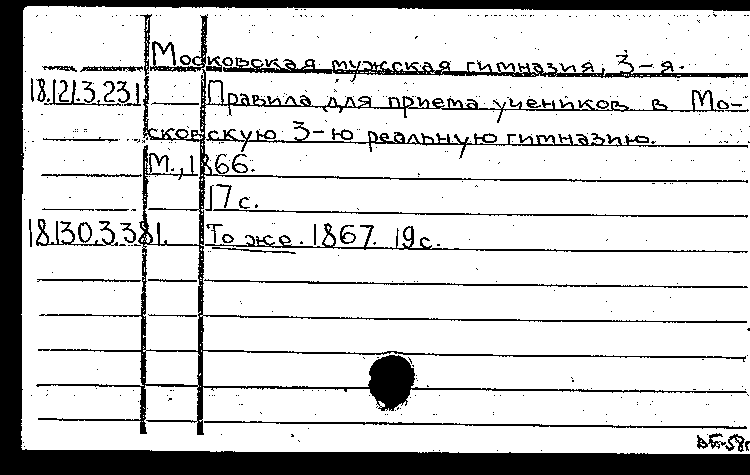 Московская мужская гимназия, 3-я.
18.121.3.231 Правила для приема учеников в Мо-
сковскую 3-ю реальную гимназию.
М., 1866.
17 с.
18.130.3.381. То же. 1867. 19 с.